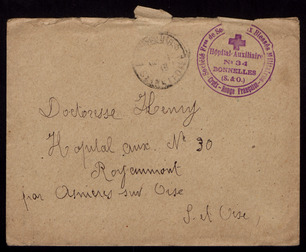 Société Fse de Se
Blessés Militaires
Hôpital Auxiliaire
No 34
DORNELLES
(S. & O.)
Croix-Rouge Française
Doctoresse Henry
Hopital aux. No 30
Royaumont
par Asnieres sur Oise
S. et Oise,